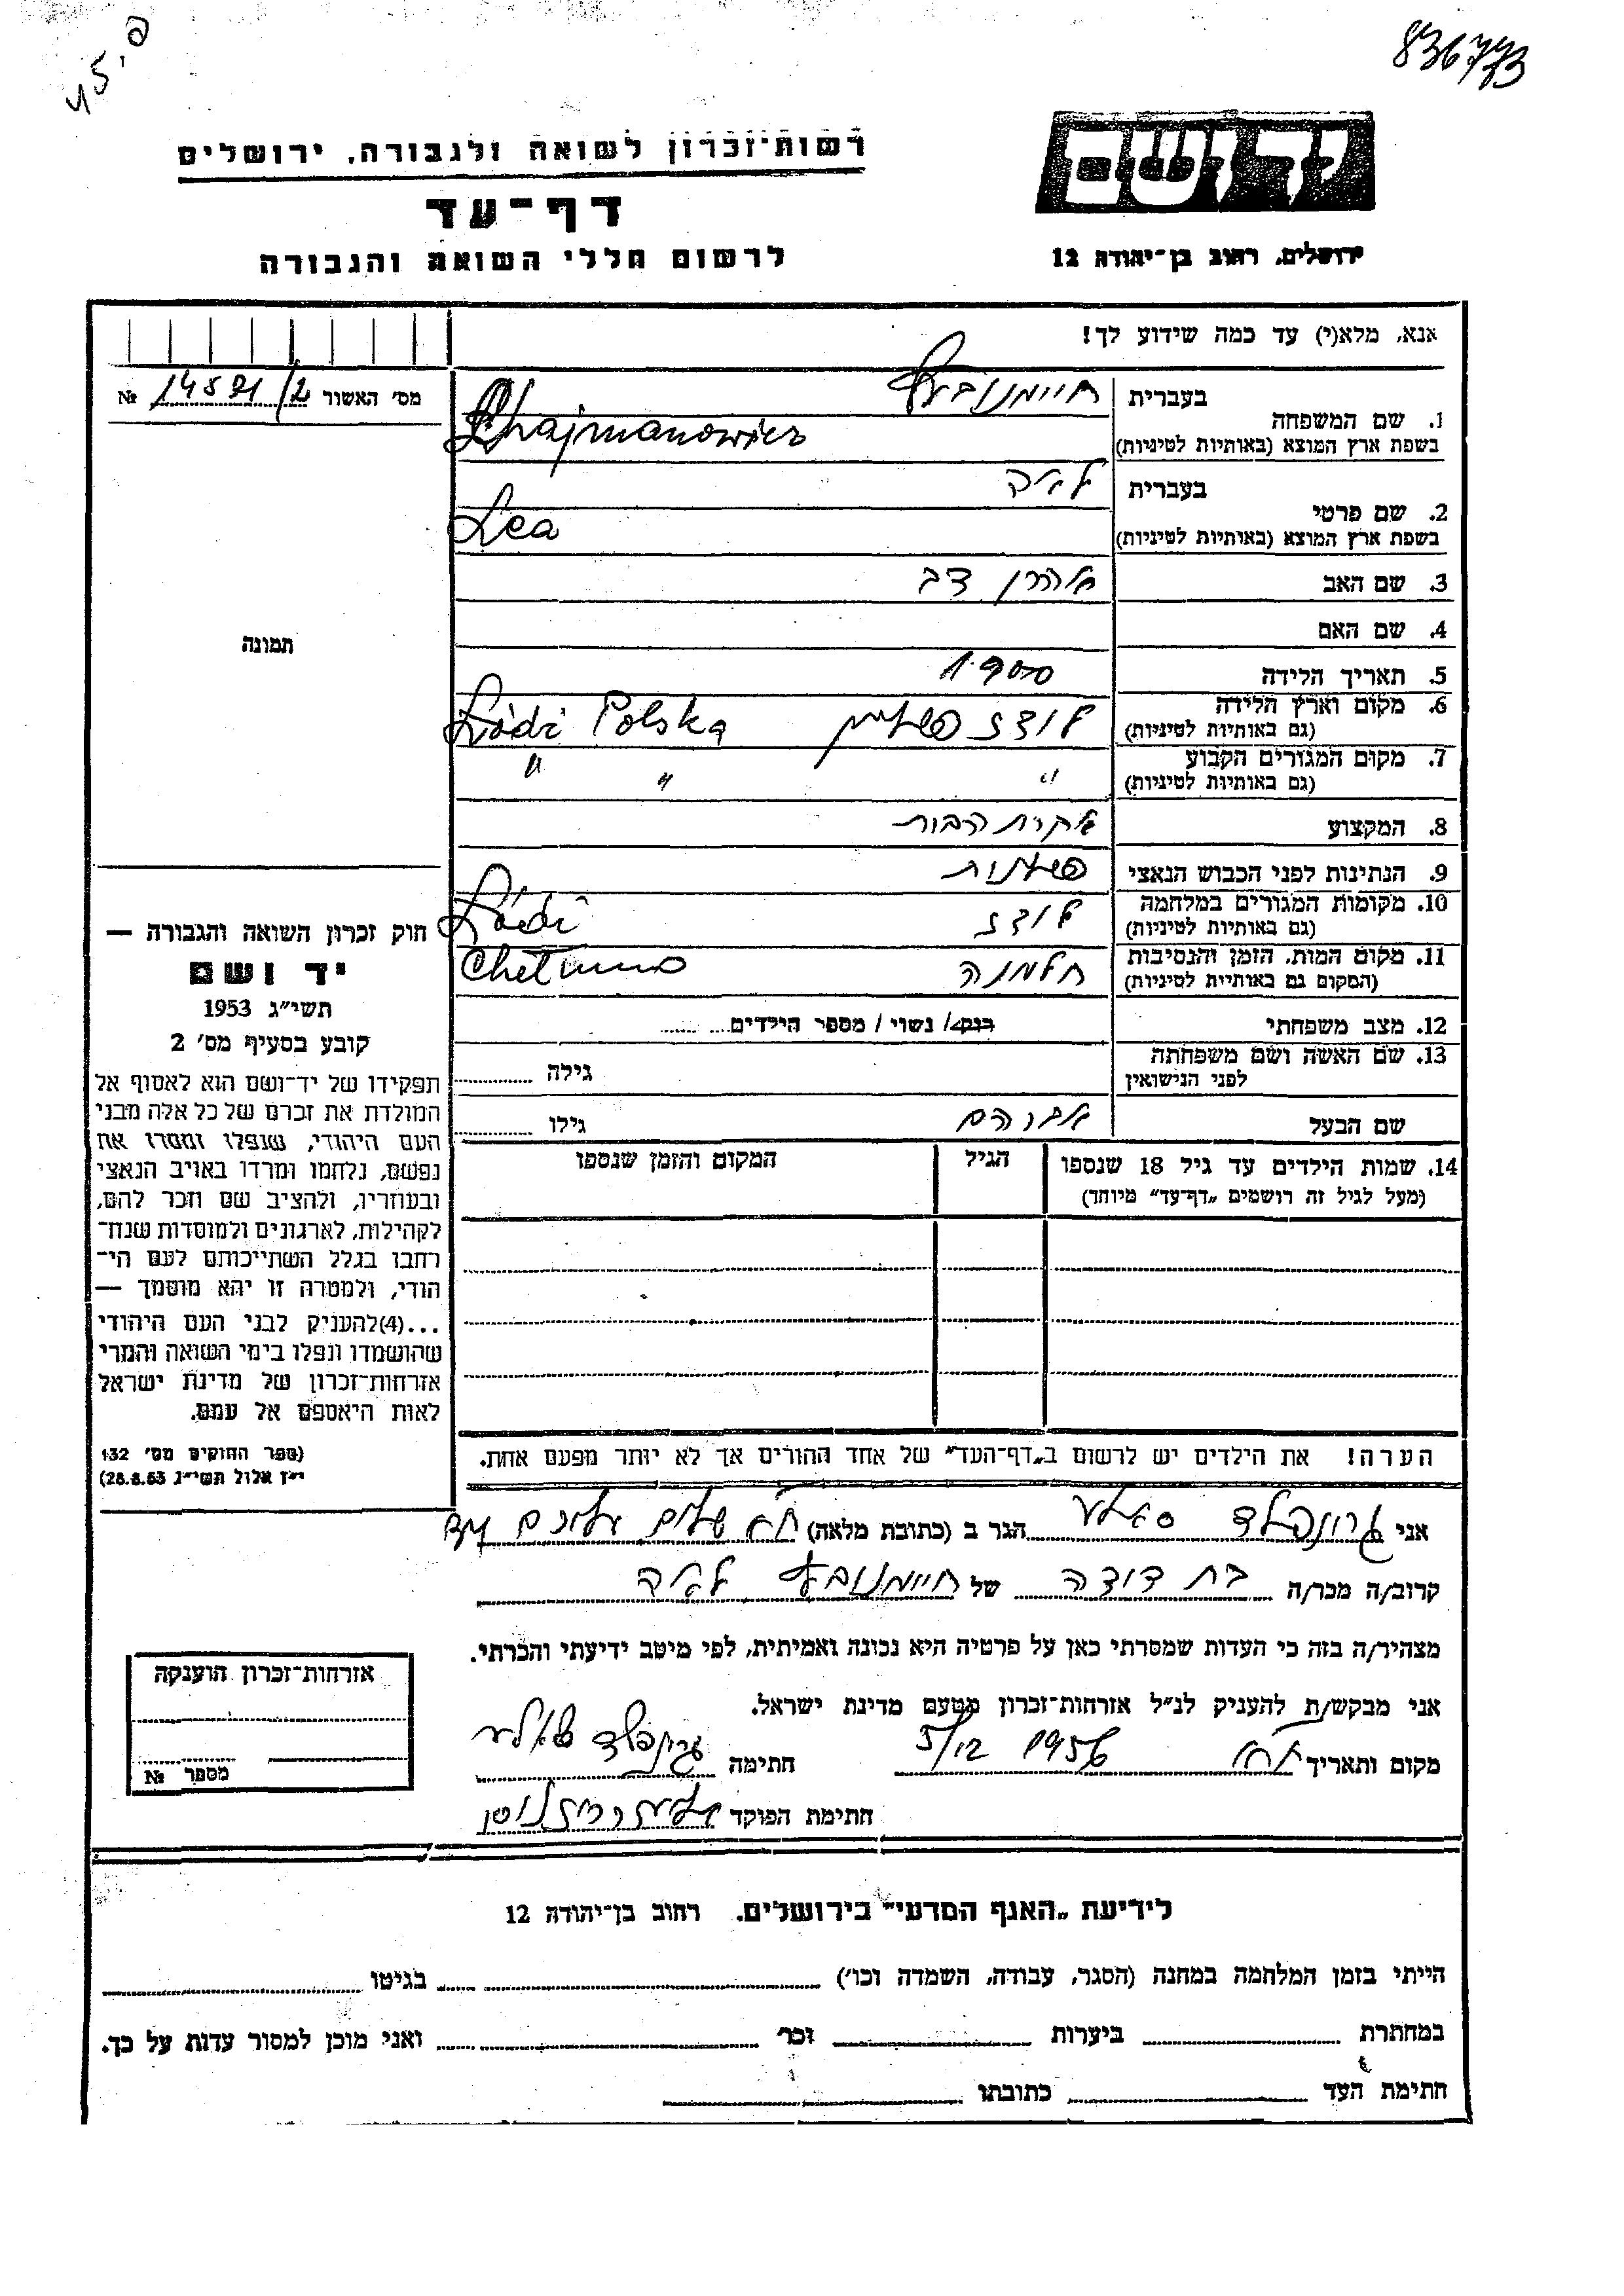 836773
רשות־זכרון לשואה ולגבורה, ירושלים
דף־עד
לרשום חללי השואה והגבורה
יד ושם
ירושלים, רחוב בן־יהודה 12
אנא, מלא(י) עד כמה שידוע לך!
מס׳ האשור 14571/2 №
1. שם המשפחה בעברית חיימנוביץ
בשפת ארץ המוצא (באותיות לטיניות) Chajmanowicz
2. שם פרטי בעברית לאה
בשפת ארץ המוצא (באותיות לטיניות) Lea
3. שם האב אהרן דב
4. שם האם
5. תאריך הלידה 1900
6. מקום וארץ הלידה (גם באותיות לטיניות) לודז פולין Łódź Polska
7. מקום המגורים הקבוע (גם באותיות לטיניות) " " "
8. המקצוע עקרת הבית
9. הנתינות לפני הכבוש הנאצי פולנית
10. מקומות המגורים במלחמה (גם באותיות לטיניות) לודז Łódź
11. מקום המות, הזמן והנסיבות (המקום גם באותיות לטיניות) חלמנה Chełmno
12. מצב משפחתי רווק/ נשוי / מספר הילדים
13. שם האשה ושם משפחתה לפני הנישואין גילה
שם הבעל אברהם גילו
14. שמות הילדים עד גיל 18 שנספו הגיל המקום והזמן שנספו
(מעל לגיל זה רושמים „דף־עד״ מיוחד)
הערה! את הילדים יש לרשום ב„דף־העד״ של אחד ההורים אך לא יותר מפעם אחת.
תמונה
חוק זכרון השואה והגבורה —
יד ושם
תשי״ג 1953
קובע בסעיף מס׳ 2
תפקידו של יד־ושם הוא לאסוף אל
המולדת את זכרם של כל אלה מבני
העם היהודי, שנפלו ומסרו את
נפשם, נלחמו ומרדו באויב הנאצי
ובעוזריו, ולהציב שם וזכר להם,
לקהילות, לארגונים ולמוסדות שנח־
רבו בגלל השתייכותם לעם הי־
הודי, ולמטרה זו יהא מוסמך —
...(4)להעניק לבני העם היהודי
שהושמדו ונפלו בימי השואה והמרי
אזרחות־זכרון של מדינת ישראל
לאות היאספם אל עמם.
(ספר החוקים מס׳ 132
י״ז אלול תשי״ג 28.8.53)
אני גרונפלד הגר ב (כתובת מלאה) ת״א שלום עליכם
קרוב/ה מכר/ה בת דודה של חיימנוביץ לאה
מצהיר/ה בזה כי העדות שמסרתי כאן על פרטיה היא נכונה ואמיתית, לפי מיטב ידיעתי והכרתי.
אני מבקש/ת להעניק לנ״ל אזרחות־זכרון מטעם מדינת ישראל.
מקום ותאריך ת״א 5/12 1956 חתימה גרינפלד
חתימת הפוקד
אזרחות־זכרון הוענקה
מספר №
לידיעת „האגף המדעי״ בירושלים, רחוב בן־יהודה 12
הייתי בזמן המלחמה במחנה (הסגר, עבודה, השמדה וכו׳) בגיטו
במחתרת ביערות וכו׳ ואני מוכן למסור עדות על כך.
חתימת העד כתובתו